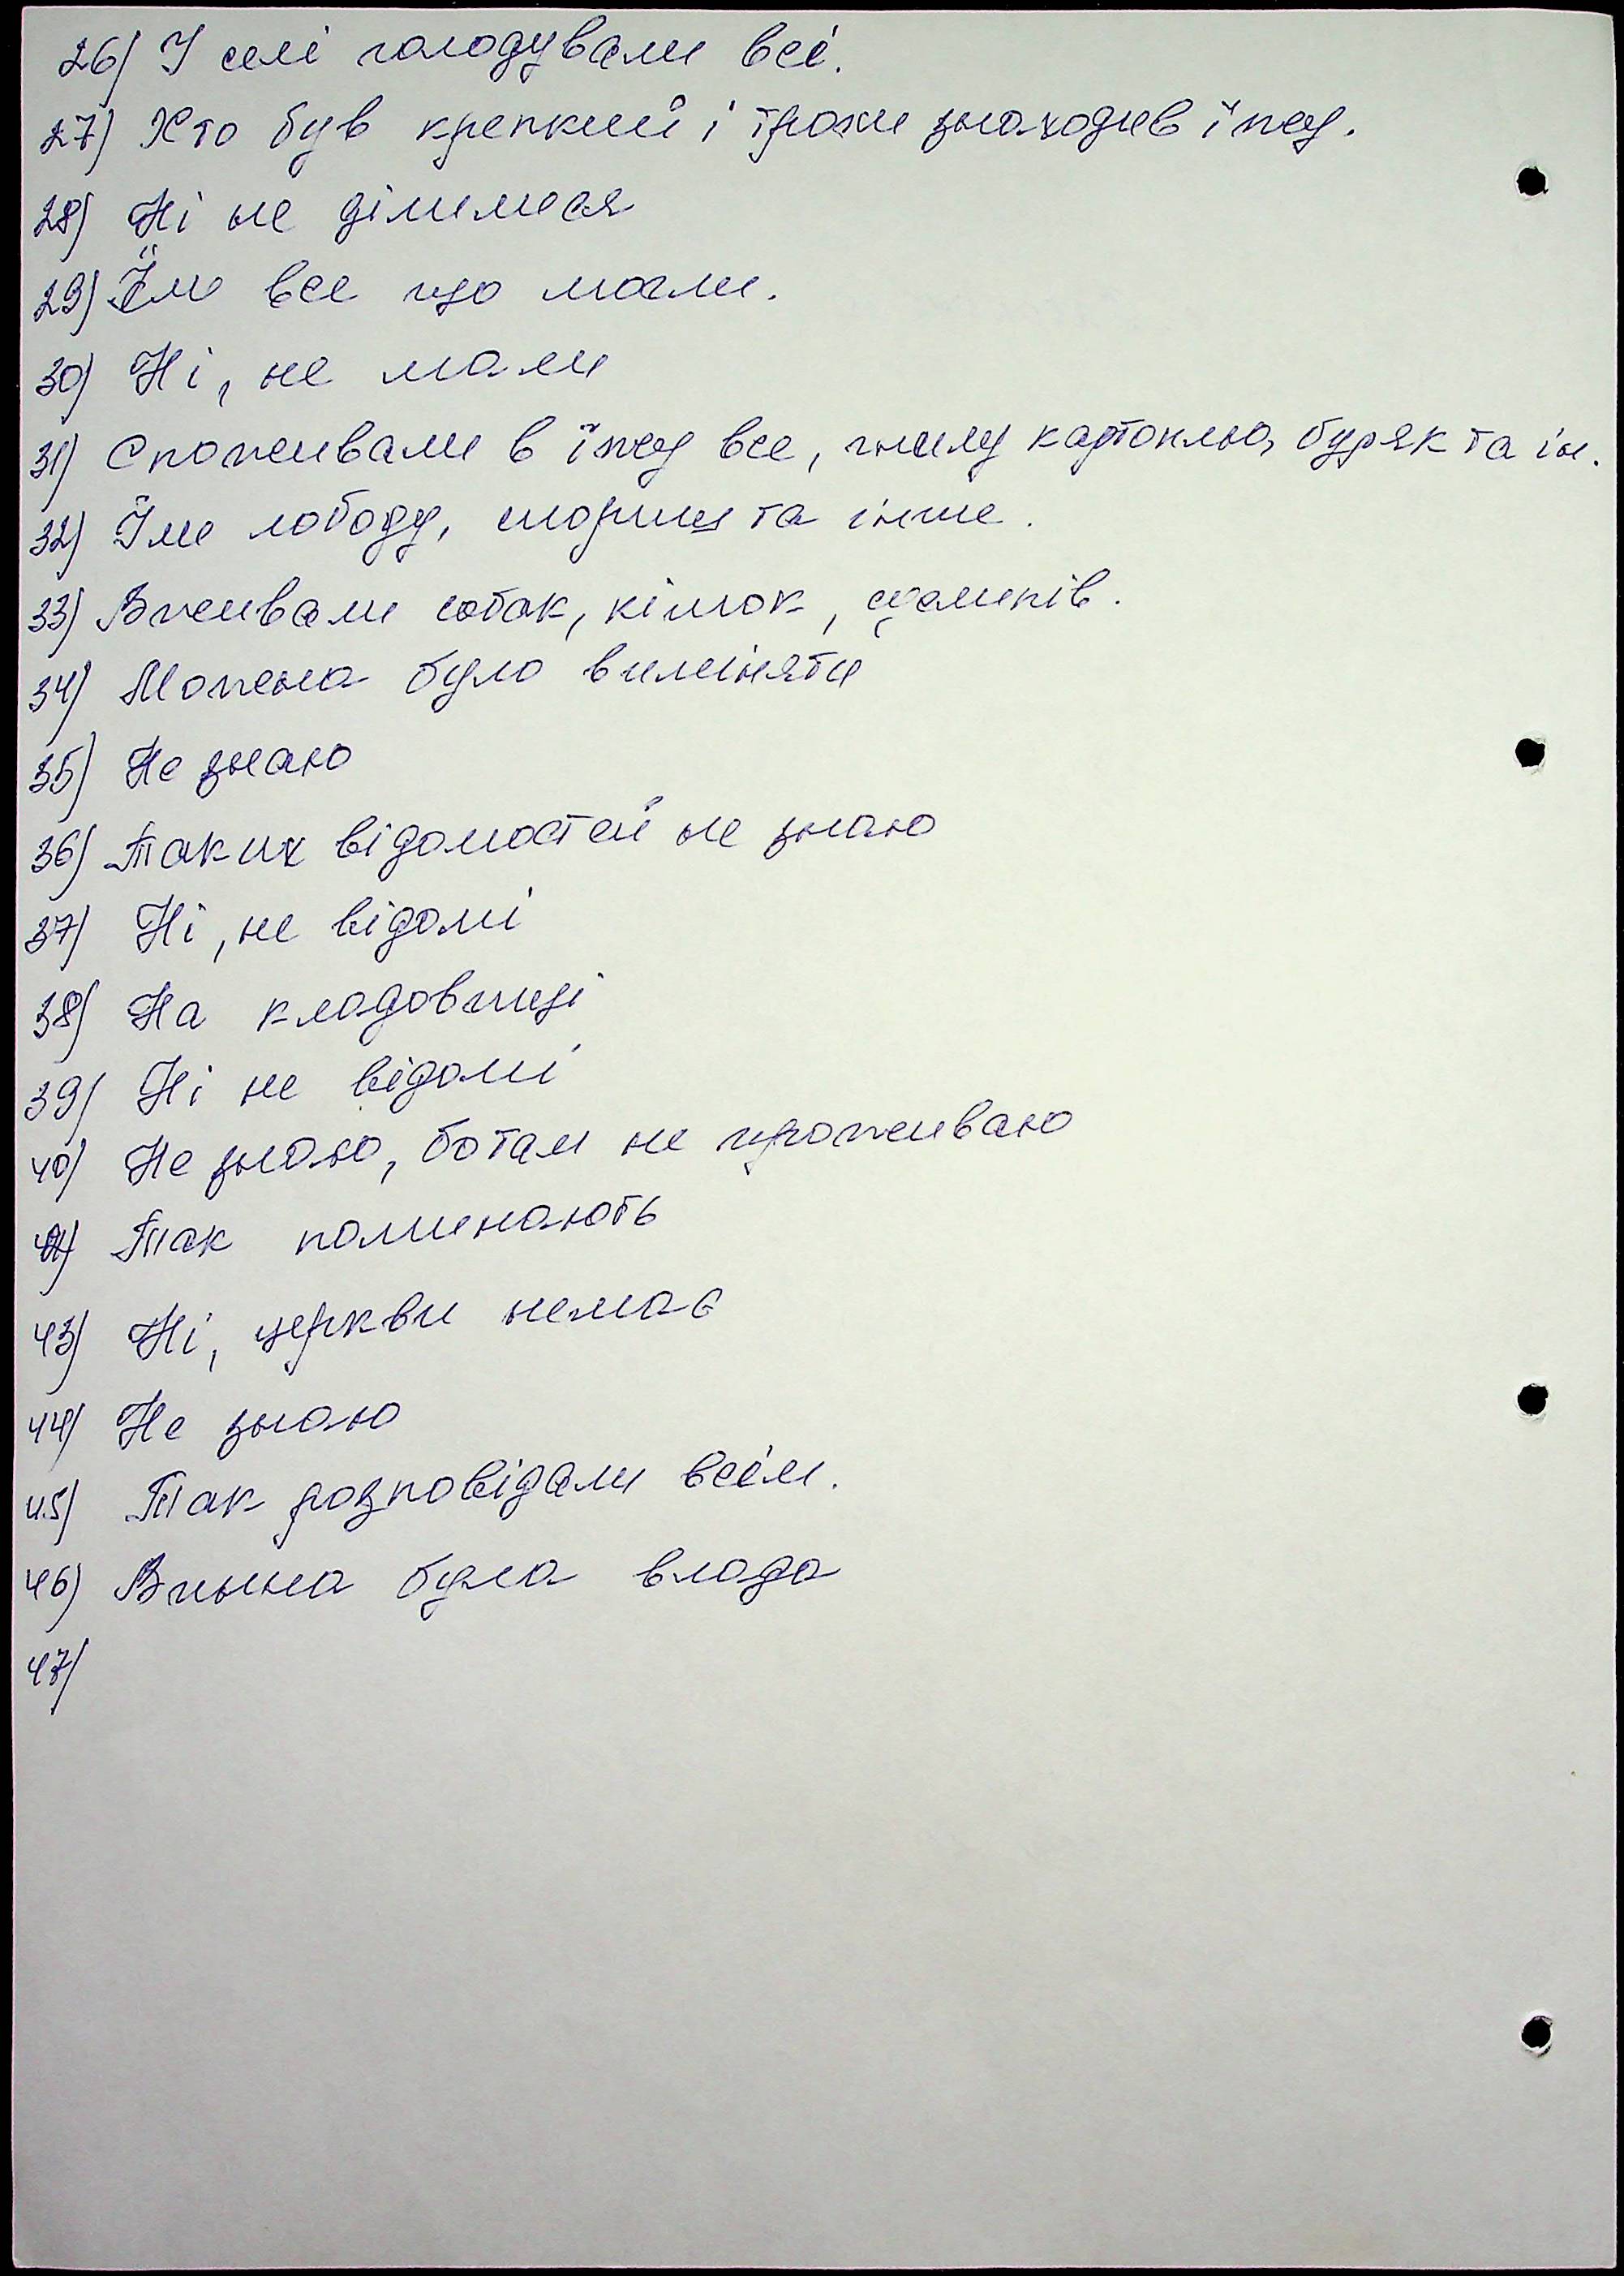 26) У селі голодували всі.
27) Хто був крепкий і трохи знаходив їжу.
28) Ні не ділилися
29) Їли все що могли.
30) Ні, не мали
31) Споживали в їжу все, гнилу картоплю, буряк та ін.
32) Їли лободу, спориш та інше.
33) Вживали собак, кішок,
34) Можна було виміняти
35) Не знаю
36) Таких відомостей не знаю
37) Ні, не відомі
38) На кладовищі
39) Ні не відомі
40) Не знаю, бо там не проживаю
41) Так поминають
43) Ні, церкви немає
44) Не знаю
45) Так розповідали всім.
46) Винна була влада
47)